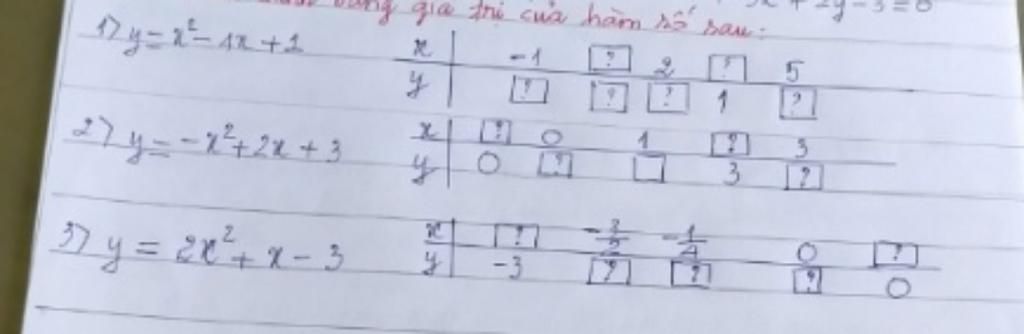 bảng giá trị của hàm số sau:
1) y = x² - 4x + 1
x | -1 [?] 2 [?] 5
y | [?] [?] [?] 1 [?]
2) y = -x² + 2x + 3
x | [?] 0 1 [?] 3
y | 0 [?] □ 3 [?]
3) y = 2x² + x - 3
x | [?] -3/2 -1/4 0 [?]
y | -3 [?] [?] [?] 0